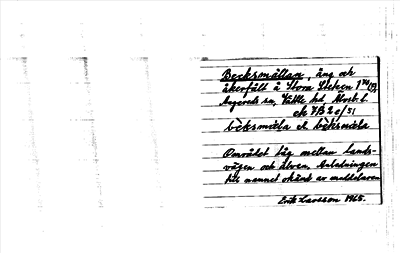 Becksmällan, äng och
åkerfält å Stora Stekén 1
Angereds sn, Vättle hd, Älvsb. l.
ek 7B 2e/51
bèksmäla el bèksmäla
Området låg mellan lands-
vägen och älven. Anledningen
till namnet okänt av meddelaren
Erik Larsson 1965.